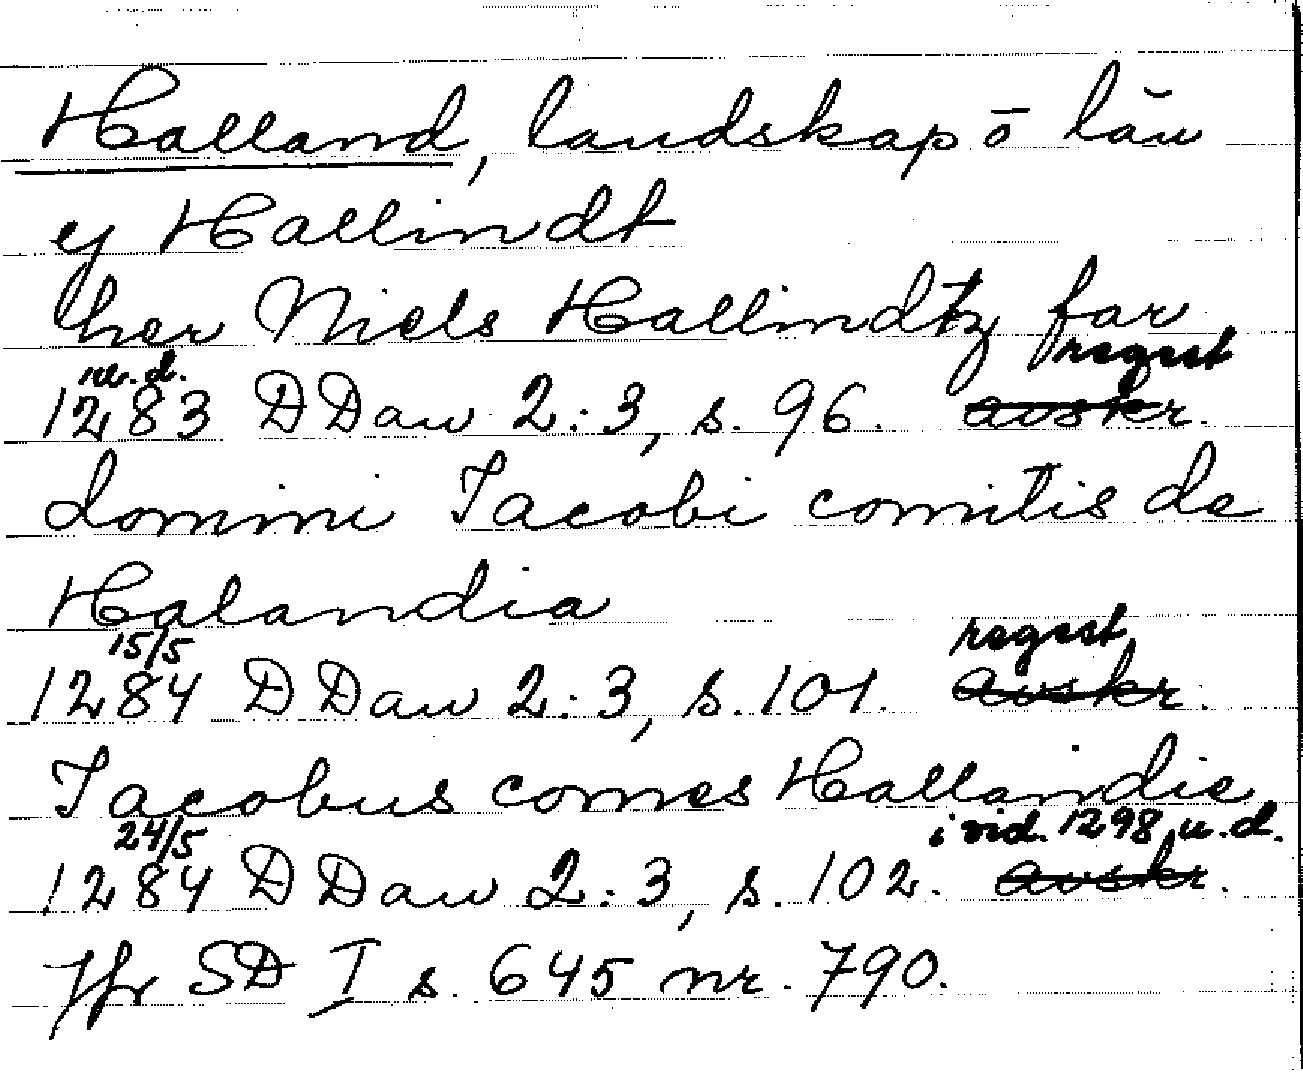 Halland, landskap o län
ej Hallindt
her Niels Hallindtz far
u.d. regest
1283 DDan 2:3, s. 96. avskr.
domini Jacobi comitis de
Halandia
15/5 regest
1284 DDan 2:3, s. 101. avskr.
Jacobus comes Hallandie
24/5 i vid. 1298 u.d.
1284 DDan 2:3, s. 102. avskr.
Jfr SD I s. 645 nr. 790.